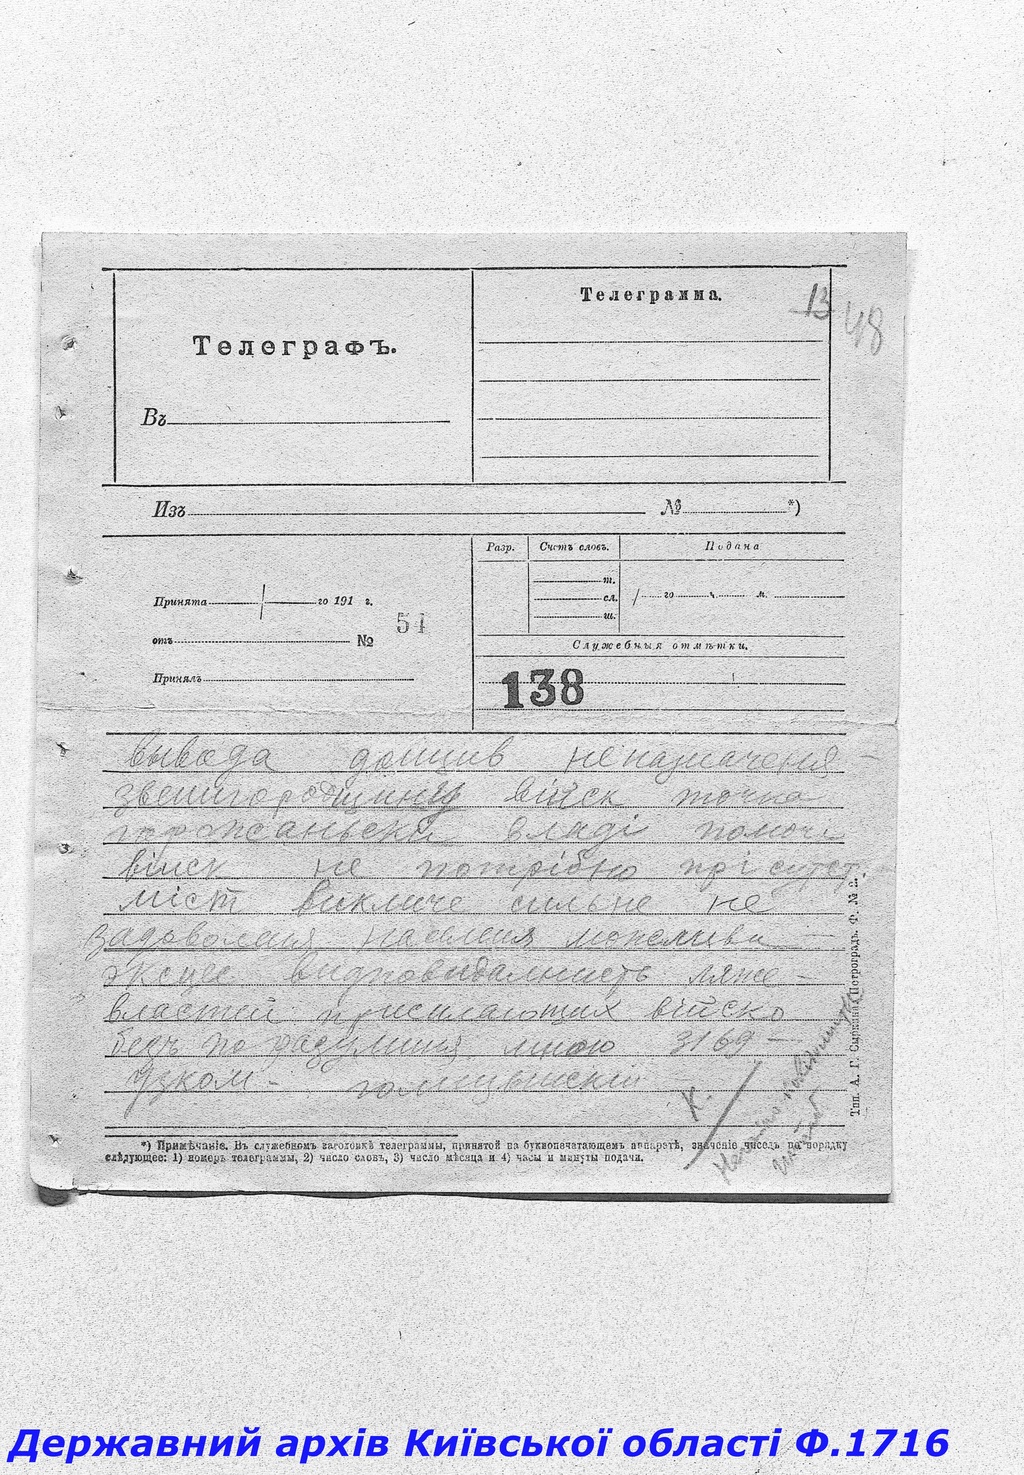 Телеграмма.
13
48
Телеграфъ.
Въ
Изъ
№ *)
Разр. Счетъ словъ. Подана
т.
сл.
ш.
/ го ч. м.
Принята / го 191 г.
54
отъ №
Служебныя отмѣтки.
Принялъ
138
вывода донцив не назначення
звенигородщину військ точка
громсаньскій владі помочи
війск не потрібно прісутст
міст викличе сильне не
задоволаня населения можливи
эксцес видповидальнисть ляже
властей присилающих війско
безъ по радумыння мною 3169 —
Узком — голшвинскій
К.
Тип. А. Г. Сыркина, Петроградъ. Ф. № 2.
*) Примѣчаніе. Въ служебномъ заголовкѣ телеграммы, принятой на буквопечатающемъ аппаратѣ, значеніе чиселъ по порядку
слѣдующее: 1) номеръ телеграммы, 2) число словъ, 3) число мѣсяца и 4) часы и минуты подачи.
Державний архів Київської області Ф.1716